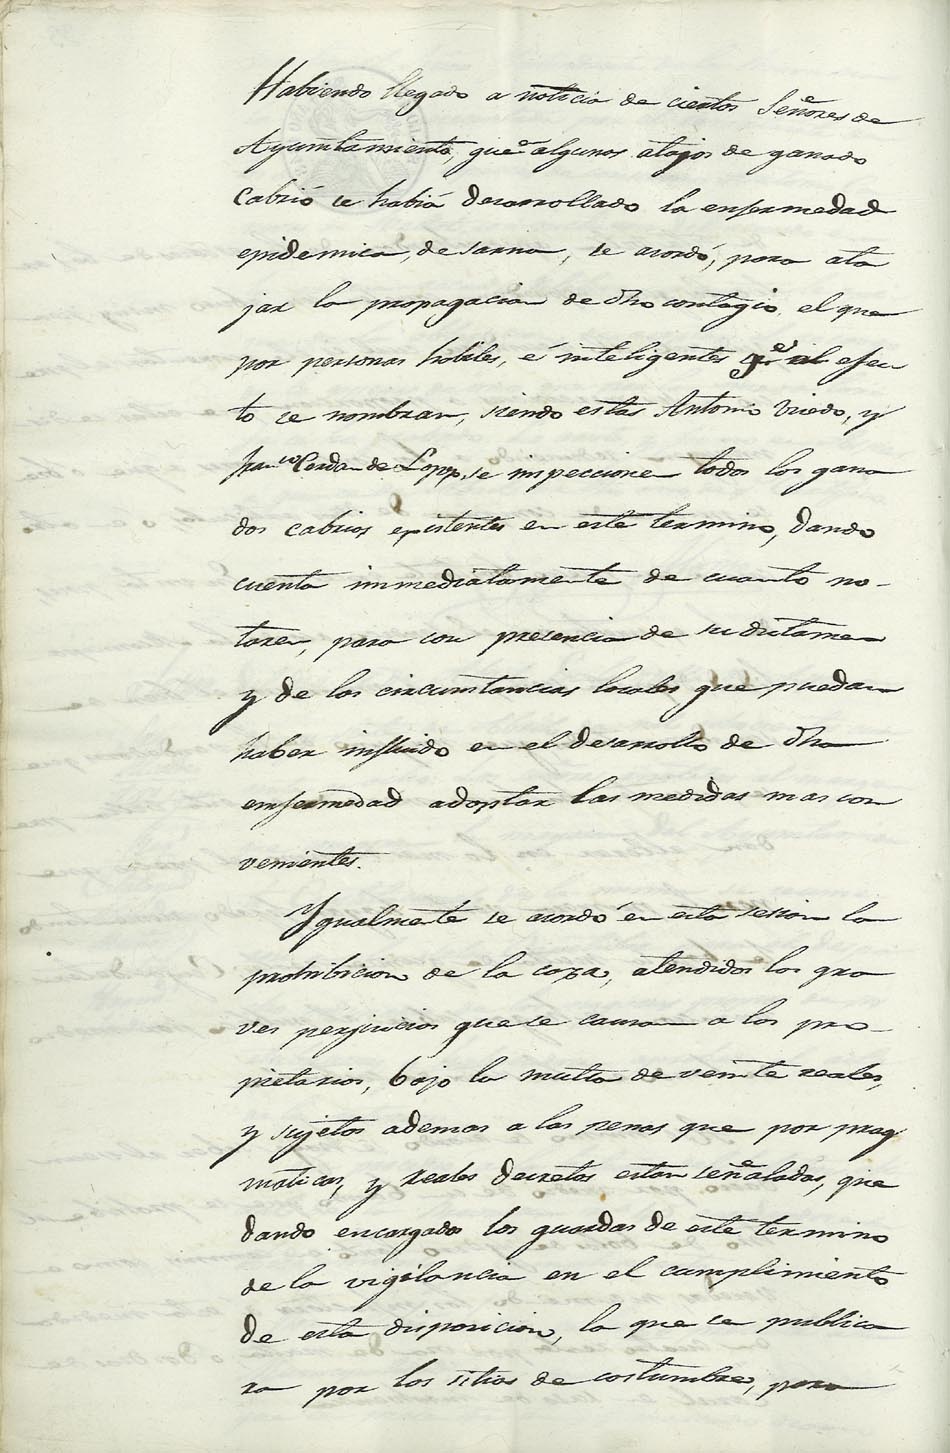 Habiendo llegado a noticia de ciertos Señores de
Ayuntamiento, que algunos atajos de ganado
Cabrio se habia desarrollado la enfermedad
epidemica, de sarna, se acordó, para ata
jar la propagacion de dho contagio, el que
por personas habiles, é inteligentes qe al efec
to se nombran, siendo estas Antonio Uriedo, y
Franco Cerdan de Lopez, se inspeccionen todos los gana
dos cabrios existentes en este termino, dando
cuenta immediatamente de cuanto no-
taren, para con presencia de su dictamen
y de las circumstancias locales que puedan
haber influido en el desarrollo de dha
emfermedad adoptar las medidas mas con
venientes.
Ygualmente se acordó en esta sesion la
prohibicion de la caza, atendidos los gra
ves perjuicios que se causan a los pro-
pietarios, bajo la multa de veinte reales,
y sujetos ademas a las penas que por prag
maticas, y reales decretos estan señaladas, que
dando encargados los guardas de este termino
de la vigilancia en el cumplimiento
de esta disposicion, la que se publica
ra por los sitios de costumbre, para